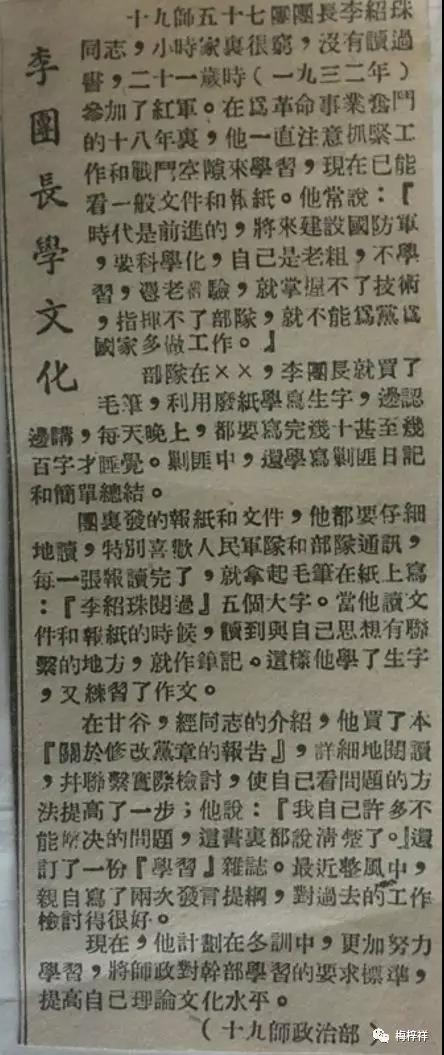 李團長學文化
十九師五十七團團長李紹珠
同志，小時家裏很窮，沒有讀過
書，二十一歲時（一九三二年）
參加了紅軍。在爲革命事業奮鬥
的十八年裏，他一直注意抓緊工
作和戰鬥空隙來學習，現在已能
看一般文件和報紙。他常說：『
時代是前進的，將來建設國防軍
，要科學化，自己是老粗，不學
習，憑老經驗，就掌握不了技術
，指揮不了部隊，就不能爲黨爲
國家多做工作。』
部隊在××，李團長就買了
毛筆，利用廢紙學寫生字，邊認
邊講，每天晚上，都要寫完幾十甚至幾
百字才睡覺。剿匪中，還學寫剿匪日記
和簡單總結。
團裏發的報紙和文件，他都要仔細
地讀，特別喜歡人民軍隊和部隊通訊，
每一張報讀完了，就拿起毛筆在紙上寫
：『李紹珠閱過』五個大字。當他讀文
件和報紙的時候，讀到與自己思想有聯
繫的地方，就作筆記。這樣他學了生字
，又練習了作文。
在甘谷，經同志的介紹，他買了本
『關於修改黨章的報告』，詳細地閱讀
，幷聯繫實際檢討，使自己看問題的方
法提高了一步；他說：『我自己許多不
能解决的問題，這書裏都說清楚了。』還
訂了一份『學習』雜誌。最近整風中，
親自寫了兩次發言提綱，對過去的工作
檢討得很好。
現在，他計劃在冬訓中，更加努力
學習，將師政對幹部學習的要求標準，
提高自己理論文化水平。
（十九師政治部）
梅梓祥